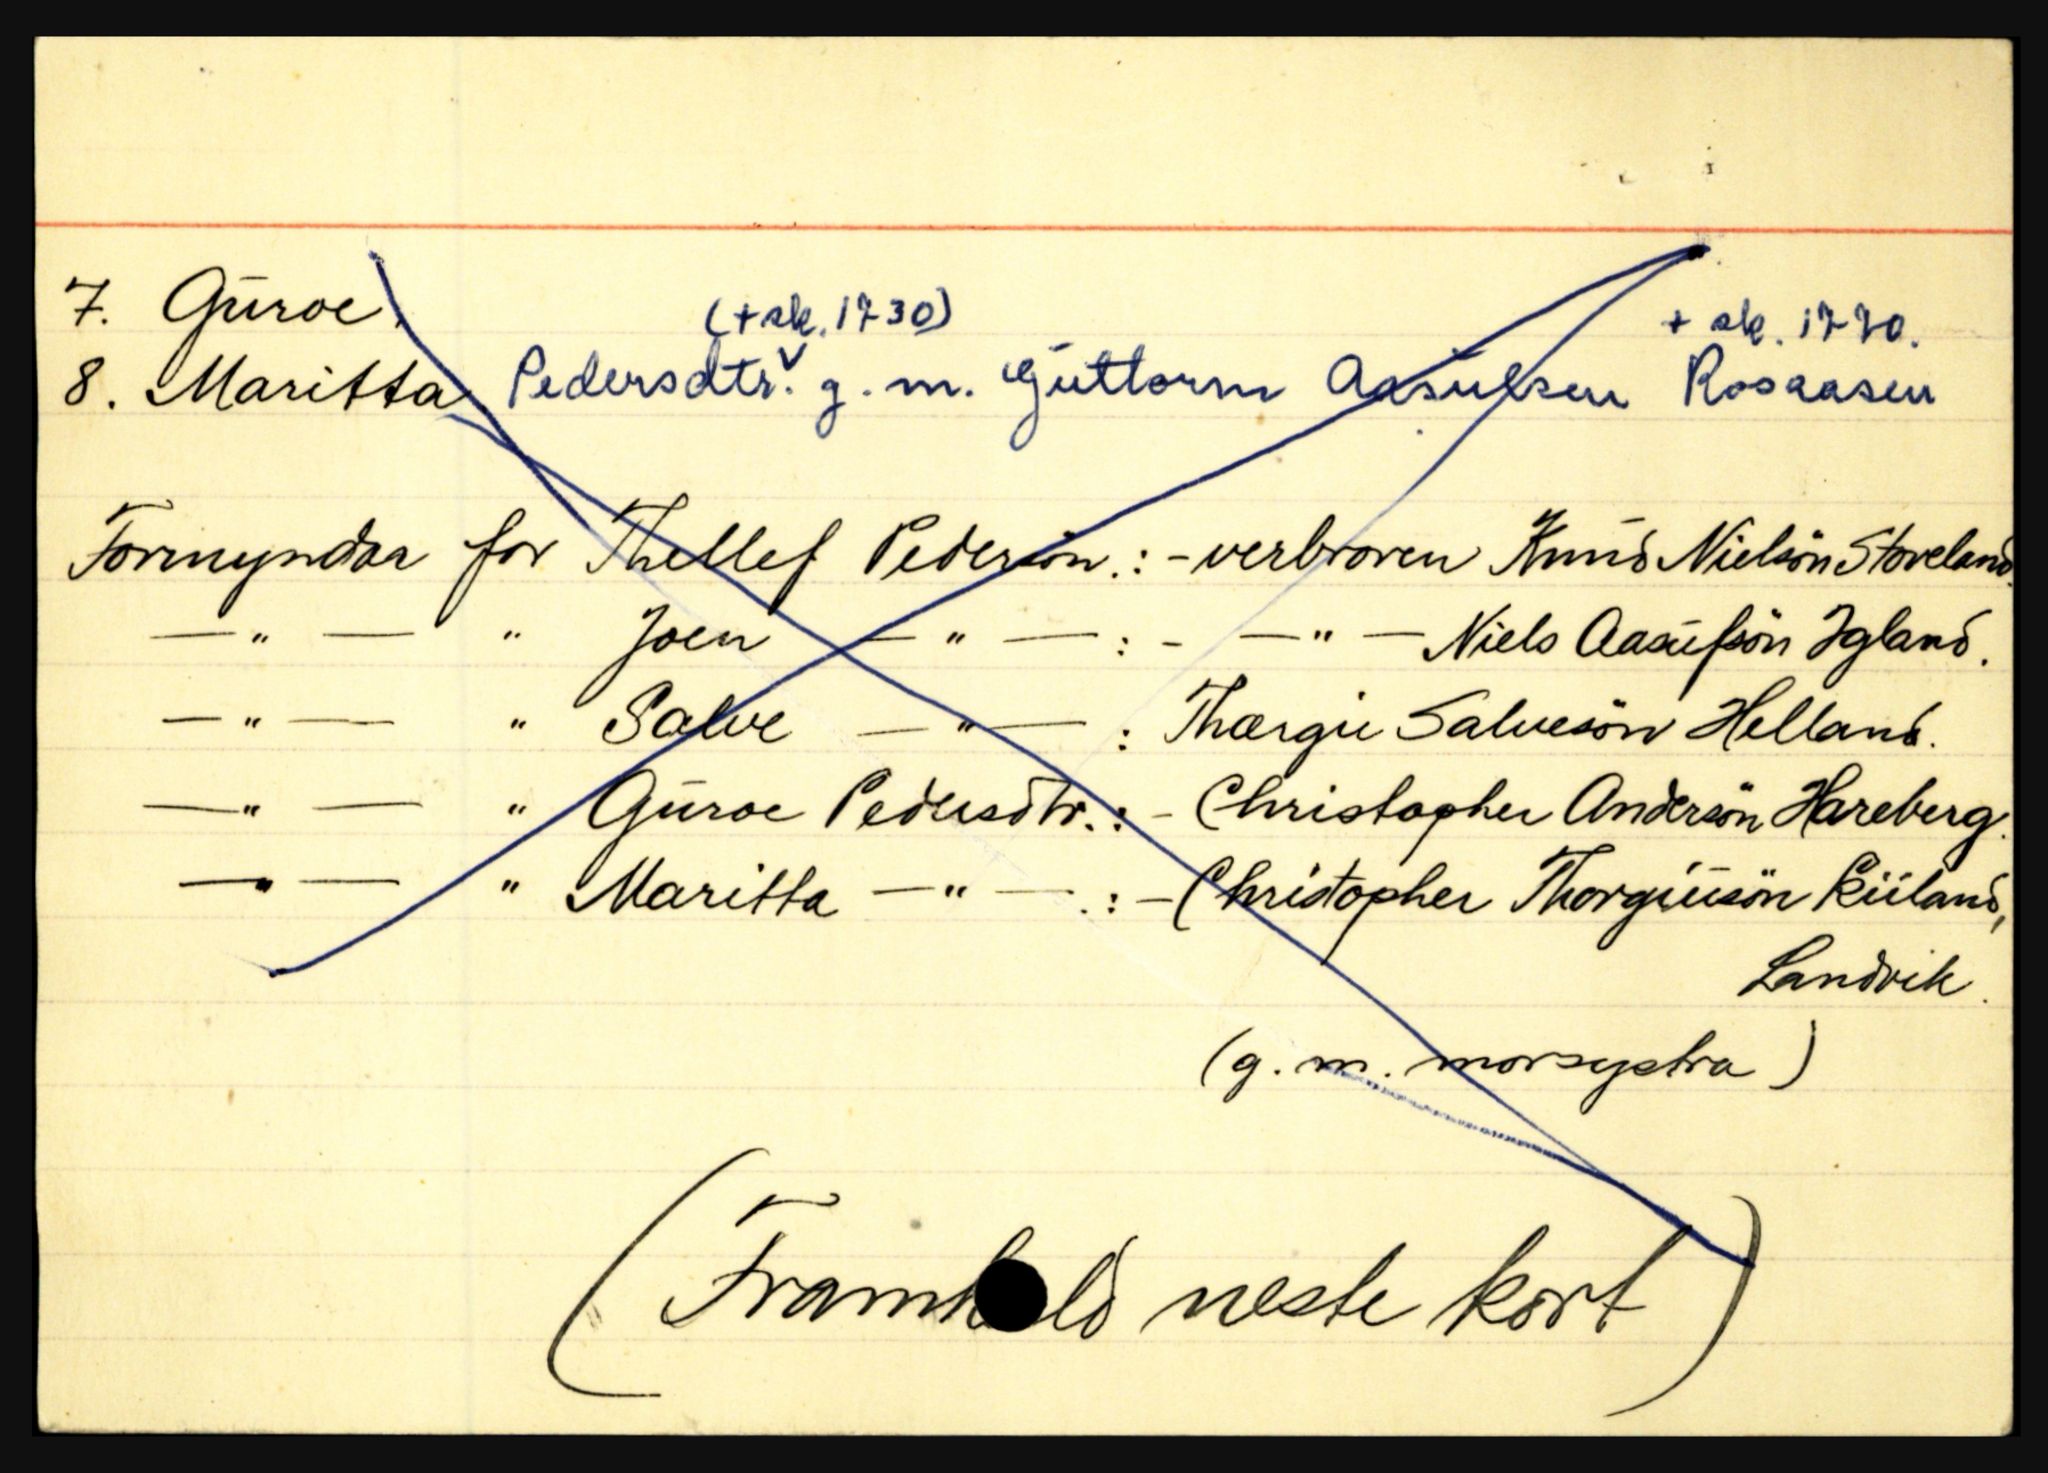 7. Gūroe.
(+ sk. 1730) + sk. 1770.
8. Maritta Pedersdtr.ˇ g. m. Gūttorm Aasūlsen Rosaasen
Formyndar for Thellef Pedersön.: - verbroren Knūd Nielsön Stoveland.
— " — " Joen — " — : - — " — Niels Aasūlsön Igland.
— " — " Salve — " — : Thorgie Salvesön Helland.
— " — " Gūroe Pedersdtr.: - Christopher Andersön Hareberg.
— " — " Maritta — " — .: - Christopher Thorgiūsön Kiiland,
Landvik.
(g. m. morsystra)
(Framhald neste kort)